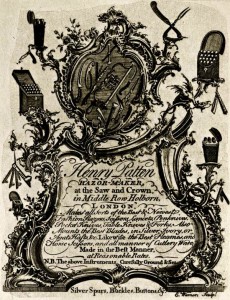 Henry Patten
RAZOR-MAKER,
at the Saw and Crown,
in Middle Row Holborn,
LONDON,
Makes all sorts of the Best & Newest
Fashion Razors, Scissors, Lancets, Penknives,
Pocket Knives, Table Knives & Forks, Also
Mounts the Best Blades, in Silver, Ivory, or
Likewise the Best
Horse Scissors, and all manner of Cutlery Ware
Made in the Best Manner,
at Reasonable Rates.
N.B. The above Instruments, Carefully Ground & Set
Silver Spurs, Buckles, Buttons, &c
Sculp.